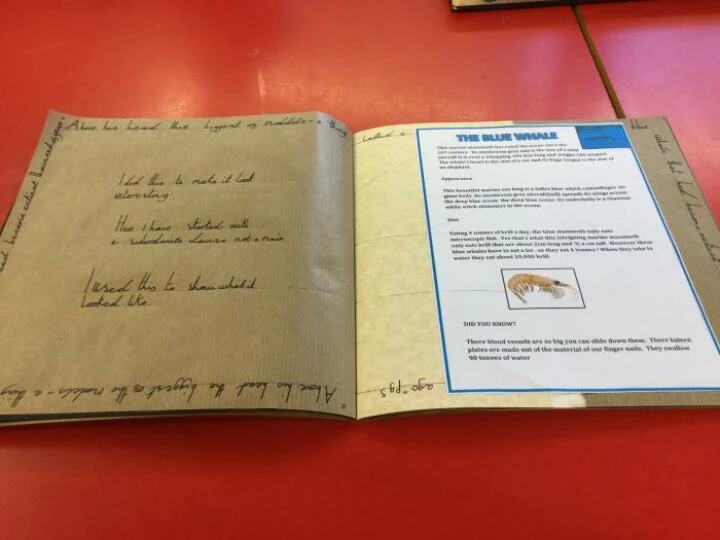 Above his head the biggest of models - a thing
called a
blue whale that had become extinct
ago" pg 5
I did this to make it look
interesting
How I have started with
a subordinate clause not a main
I used this to show what it
looked like.
Above his head the biggest of the models - a thing
had become extinct
THE BLUE WHALE
This marine mammoth has ruled the ocean since the
20th century. Its mushroom grey
aircraft it is over a whopping 100 feet long and weighs
The whale's heart is the size of a car and its huge tongue is the size of
an elephant.
Appearance
This beautiful marine sea king is a lufice blue which camouflages its
giant body. Its mushroom grey aircraft(tail) spreads its wings across
the deep blue ocean the deep blue ocean. Its underbelly is a titanium
white witch shimmers in the ocean.
Diet
Eating 4 tonnes of krill a day, the blue mammoth only eats
microscopic fish. Yes that's what this intriguing marine mammoth
only eats krill that are about 2cm long and ½ a cm tall. However these
blue whales have to eat a lot, so they eat 4 tonnes! When they take in
water they eat about 10,000 krill
DID YOU KNOW?
There blood vessels are so big you can slide down them. There baleen
plates are made out of the material of our finger nails. They swallow
90 tonnes of water